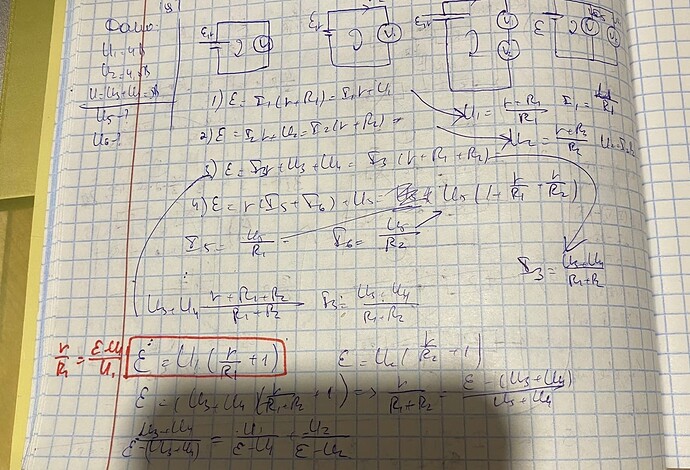 Дано:
U₁ = 4 В
U₂ =
U = U₃ + U₄ =
U₅ - ?
U₆ - ?
1) ℰ = I₁ (r + R₁) = I₁ r + U₁
2) ℰ = I₂ r + U₂ = I₂ (r + R₂)
3) ℰ = I₃ r + U₃ + U₄ = I₃ (r + R₁ + R₂)
4) ℰ = r (I₅ + I₆) + U₅ = U₅ (1 + r/R₁ + r/R₂)
I₅ = U₅/R₁
I₆ = U₅/R₂
I₃ = (U₃ + U₄)/(R₁ + R₂)
U₃ + U₄ (r + R₁ + R₂)/(R₁ + R₂)
I₃ = (U₃ + U₄)/(R₁ + R₂)
r/R₁ = (ℰ - U₁)/U₁
ℰ = U₁ (r/R₁ + 1)
ℰ = U₂ (r/R₂ + 1)
ℰ = (U₃ + U₄) (r/(R₁ + R₂) + 1) => r/(R₁ + R₂) = (ℰ - (U₃ + U₄))/(U₃ + U₄)
(U₃ + U₄)/(ℰ - (U₃ + U₄)) = U₁/(ℰ - U₁) + U₂/(ℰ - U₂)